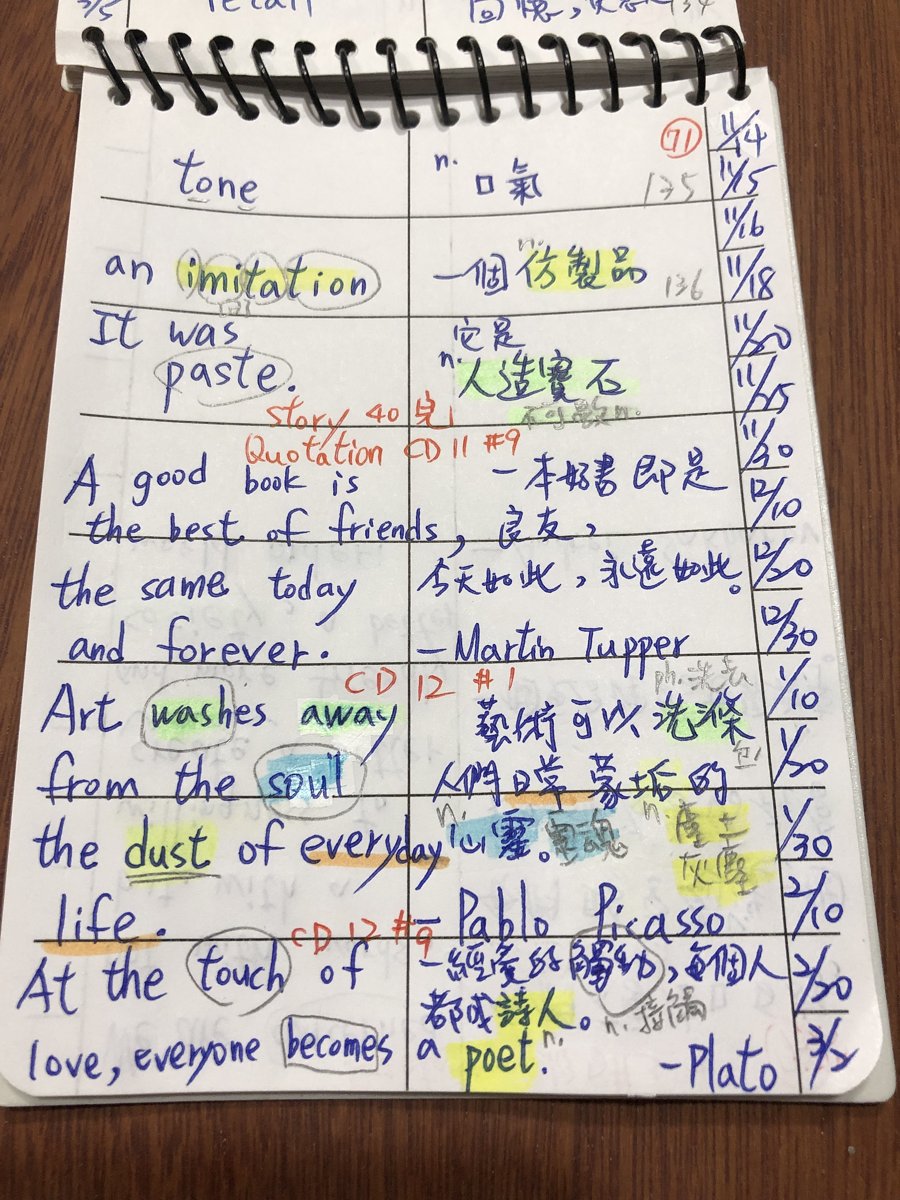 3/5 retail 134
71 11/14
tone n. 口氣 135 11/15
11/16
an imitation n. 一個仿製品 136 11/18
It was 它是 11/20
paste. n. 人造寶石 11/25
story 40 完 不可數n.
Quotation CD 11 #9 11/30
A good book is 一本好書即是
the best of friends, 良友, 12/10
the same today 今天如此,永遠如此。 12/20
and forever. —Martin Tupper 12/30
CD 12 #1 ph. 洗去 1/10
Art washes away 藝術可以洗滌
from the soul 人們日常蒙垢的 1/20
the dust of everyday n. 心靈。靈魂 n. 塵土 1/30
灰塵
life. —Pablo Picasso 2/10
CD 12 #9
At the touch of 觸動,每個人 2/20
都成詩人。 n. 接觸
love, everyone becomes a poet. n. —Plato 3/2